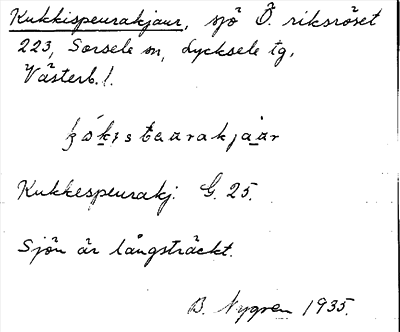 Kukkispeurakjaur, sjö Ö. riksröset
223, Sorsele sn, Lycksele tg.
Västerb. l.
Kukkespeurakj. G. 25.
Sjön är långsträckt.
B. Nygren 1935.